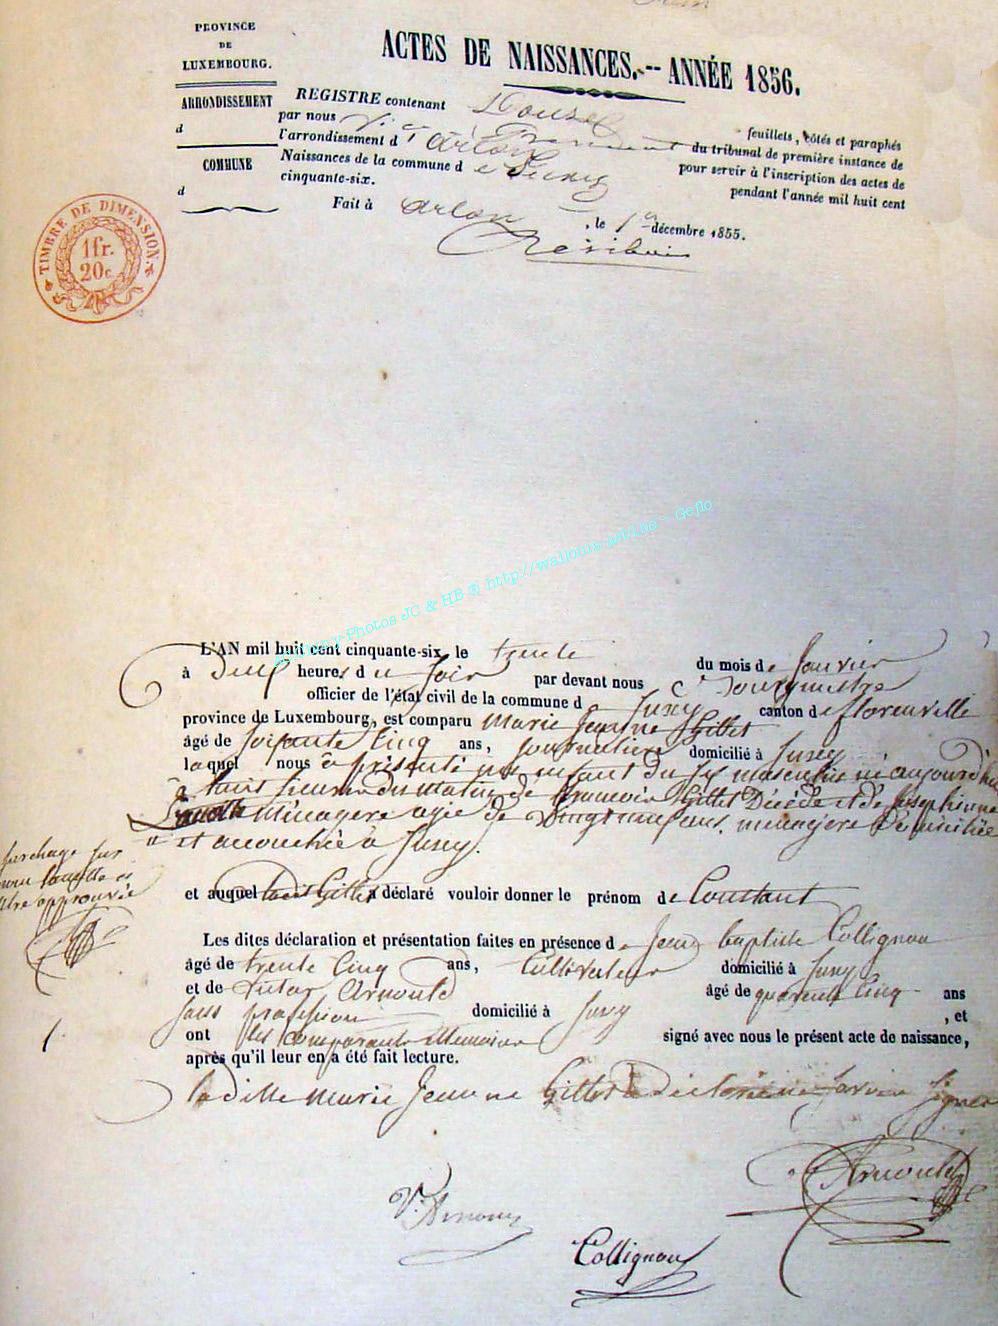 PROVINCE
DE
LUXEMBOURG.
ARRONDISSEMENT
d
COMMUNE
d
ACTES DE NAISSANCES.-- ANNÉE 1856.
REGISTRE contenant Douze feuillets, côtés et paraphés
par nous Vice Président du tribunal de première instance de
l'arrondissement d'Arlon pour servir à l'inscription des actes de
Naissances de la commune de pendant l'année mil huit cent
cinquante-six.
Fait à Arlon, le 1er décembre 1855.
TIMBRE DE DIMENSION.
1fr.
20c.
Photos JC & HB © http://wallonie - Geflo
L'AN mil huit cent cinquante-six, le trente du mois de Janvier
à Deux heures du Soir par devant nous Bourgmestre
officier de l'état civil de la commune d Jusey canton de florenville
province de Luxembourg, est comparu Marie Jeanne Gillet
âgé de Soixante Cinq ans, domicilié à Jusey
laquel nous a présenté un enfant du sex masculin né aujourd'hui
à huit heures du Matin de francois Gillet Décédé et de Josephinne
Lamotte Ménagere agée de Vingt neuf ans, menagere Domiciliée
et accouchée à Jusey.
Surchage sur
nom Lamotte ci
contre approuvée
et auquel a déclaré vouloir donner le prénom de Constant
Les dites déclaration et présentation faites en présence de Jean baptiste Collignon
âgé de trente Cinq ans, Cultivateur domicilié à Jusey
et de Victor Arnould âgé de quarente Cinq ans
sans profession domicilié à Jusey, et
ont les comparants temoins signé avec nous le présent acte de naissance,
après qu'il leur en a été fait lecture.
1.
la dille Marie Jeanne Gillet à declaré ne savoir signer
Arnould
V. Arnould
Collignon